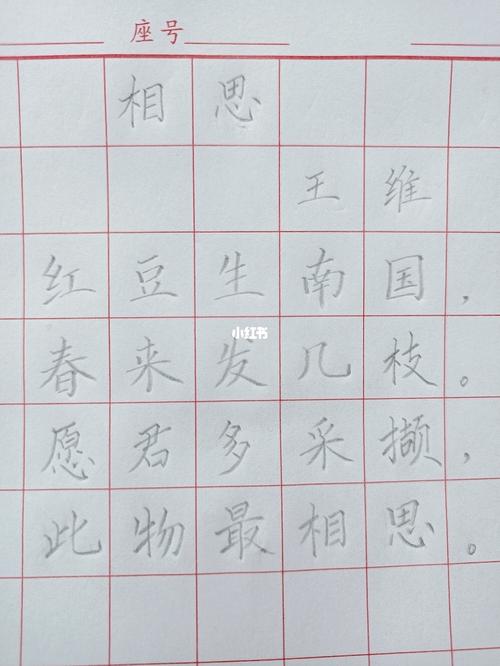 座号
相思
王维
红豆生南国，
春来发几枝。
小红书
愿君多采撷，
此物最相思。